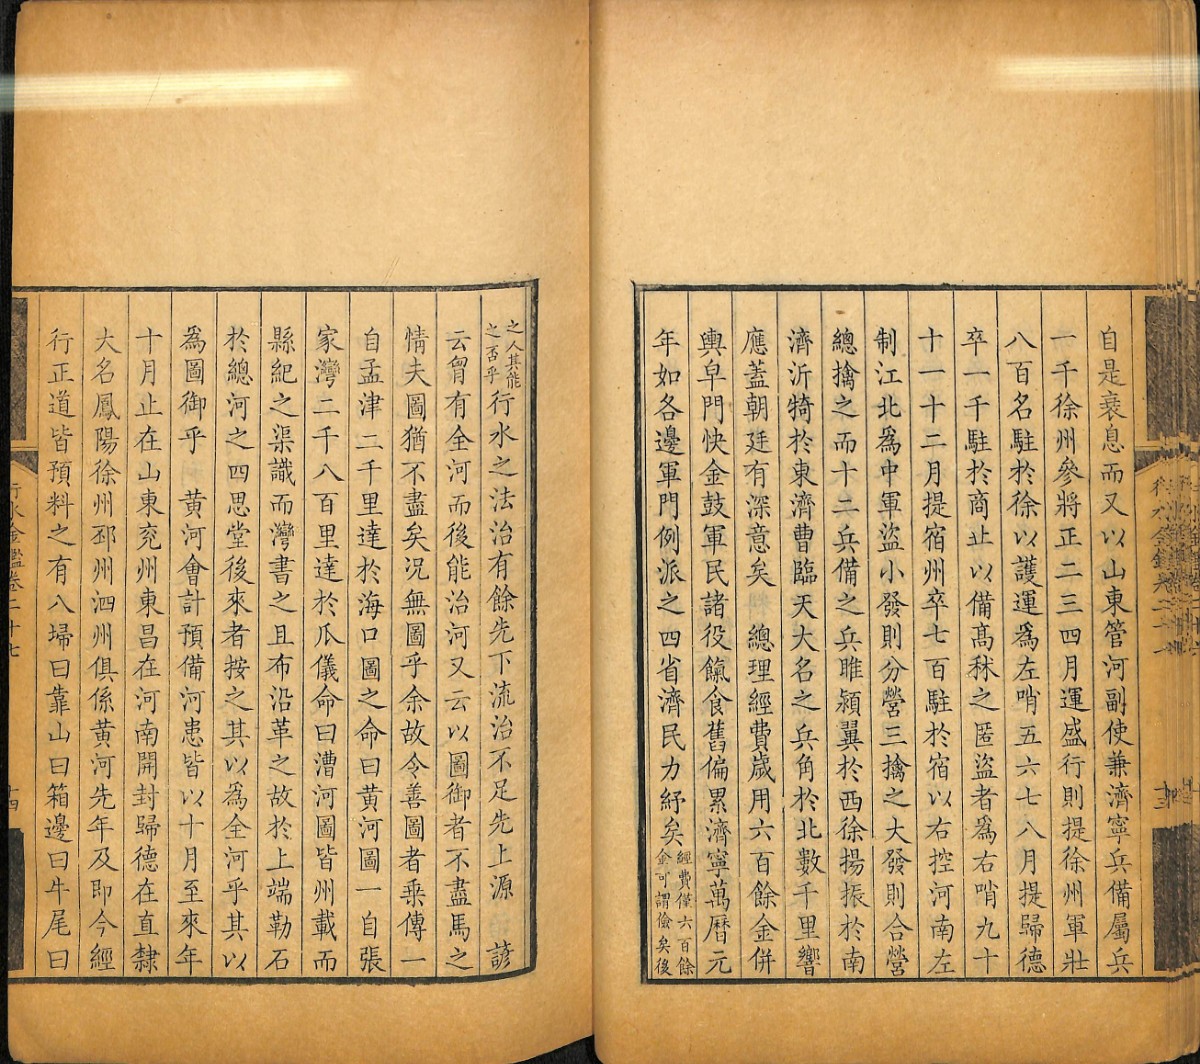 自是衰息而又以山東管河副使兼濟寧兵備屬兵
一千徐州參將正二三四月運盛行則提徐州軍壯
八百名駐於徐以護運為左哨五六七八月提歸德
卒一千駐於商止以備髙秫之匿盜者為右哨九十
十一十二月提宿州卒七百駐於宿以右控河南左
制江北為中軍盜小發則分營三擒之大發則合營
總擒之而十二兵備之兵睢潁翼於西徐揚振於南
濟沂犄於東濟曹臨天大名之兵角於北數千里響
應蓋朝廷有深意矣　總理經費歲用六百餘金併
輿皁門快金鼓軍民諸役餼食舊偏累濟寧萬曆元
年如各邊軍門例派之四省濟民力紓矣
經費僅六百餘
金可謂儉矣後
之人其能
之否乎
行水之法治有餘先下流治不足先上源　諺
云胷有全河而後能治河又云以圖御者不盡馬之
情夫圖猶不盡矣况無圖乎余故令善圖者乘傳一
自孟津二千里達於海口圖之命曰黄河圖一自張
家灣二千八百里達於瓜儀命曰漕河圖皆州載而
縣紀之渠識而灣書之且布沿革之故於上端勒石
於總河之四思堂後來者按之其以為全河乎其以
為圖御乎　黄河會計預備河患皆以十月至來年
十月止在山東兖州東昌在河南開封歸德在直隸
大名鳳陽徐州邳州泗州俱係黄河先年及即今經
行正道皆預料之有八埽曰靠山曰箱邊曰牛尾曰
行水金鑑卷二十七
十四